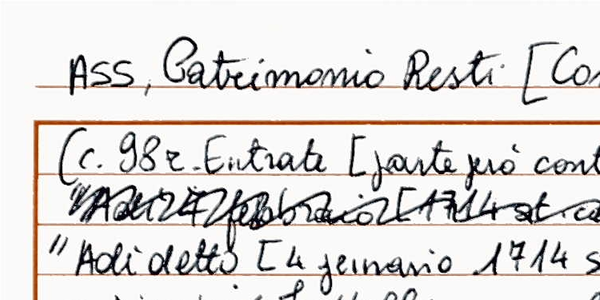 ASS, Patrimonio Resti [Co
(c. 98r. Entrate [parte però cont
"Adì 27 febbraio [1714 st. c
"Adì detto [4 gennaio 1714 s